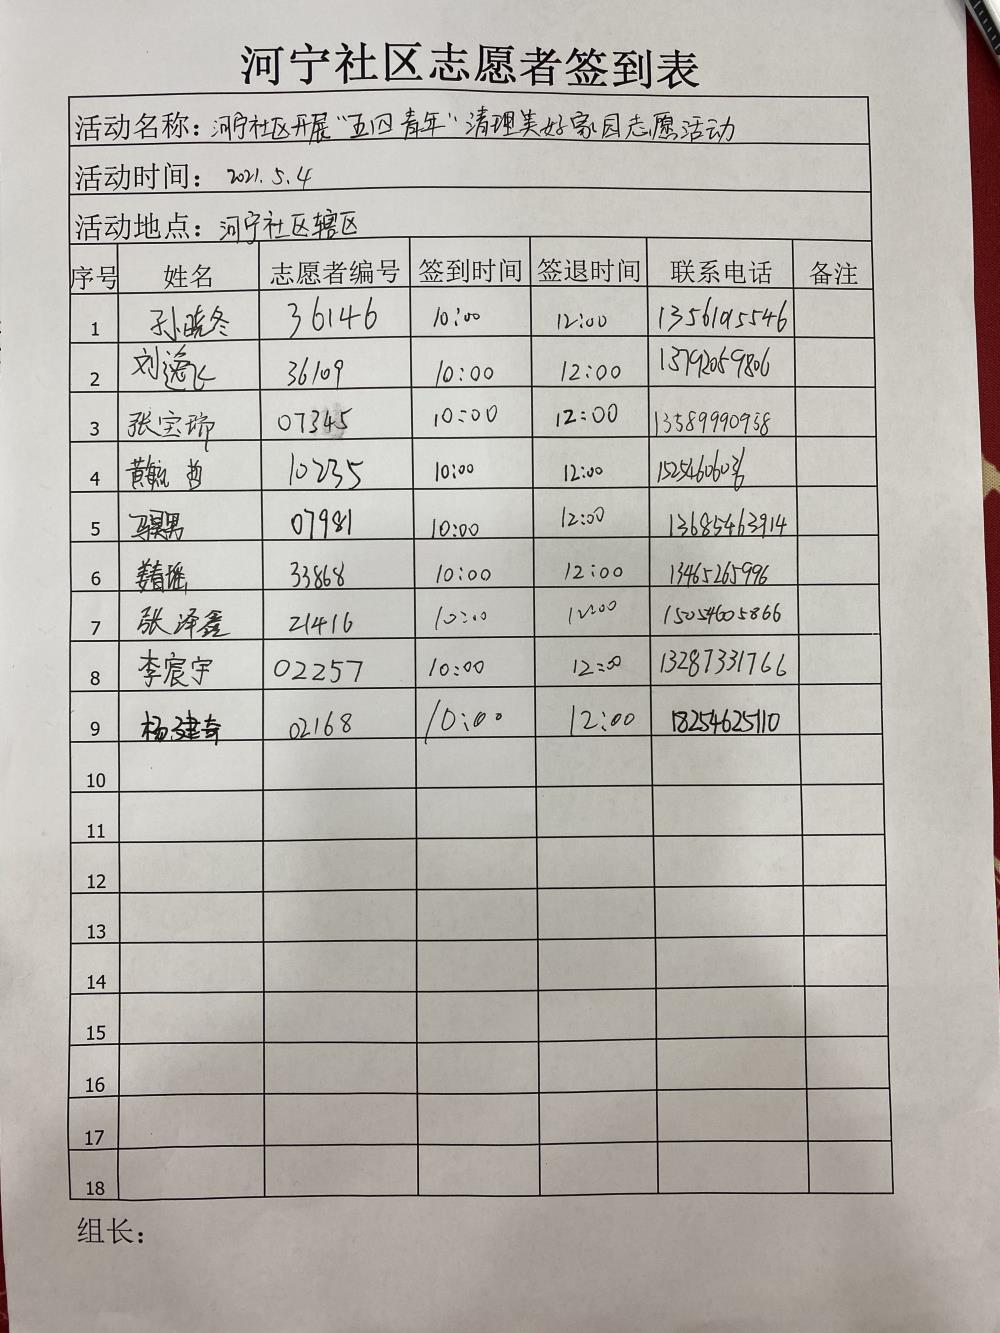 河宁社区志愿者签到表
活动名称：河宁社区开展"五四青年"清理美好家园志愿活动
活动时间：2021.5.4
活动地点：河宁社区辖区
序号 姓名 志愿者编号 签到时间 签退时间 联系电话 备注
1 孙晓冬 36146 10:00 12:00
2 刘逸飞 36109 10:00 12:00 13792059806
3 张宝瑞 07345 10:00 12:00 13589990958
4 黄毓哲 10235 10:00 12:00
5 07981 10:00 12:00 13685463914
6 33868 10:00 12:00 13465265996
7 张泽鑫 21416 10:00 12:00 15054605866
8 李宸宇 02257 10:00 12:00 13287331766
9 杨建奇 02168 10:00 12:00 18254625110
10
11
12
13
14
15
16
17
18
组长：